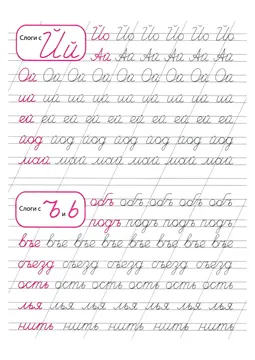 Слоги с Йй
Йо Йо Йо Йо Йо Йо
Ай Ай Ай Ай Ай Ай
Ой Ой Ой Ой Ой Ой Ой Ой Ой
ий ий ий ий ий ий ий ий ий
ей ей ей ей ей ей ей ей ей
йод йод йод йод йод йод йод
май май май май май май
Слоги с ъ и ь
объ объ объ объ
подъ подъ подъ подъ
въе въе въе въе въе въе въе въе
съезд съезд съезд съезд съезд
ость ость ость ость ость ость
лья лья лья лья лья лья лья
нить нить нить нить нить нить